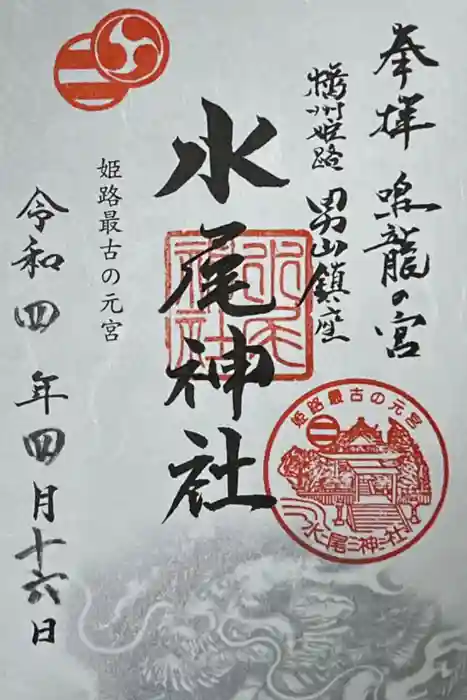 奉拝 鳴龍の宮
播州姫路 男山鎮座
水尾神社
水尾神社
姫路最古の元宮
水尾神社
姫路最古の元宮
令和四年四月十六日